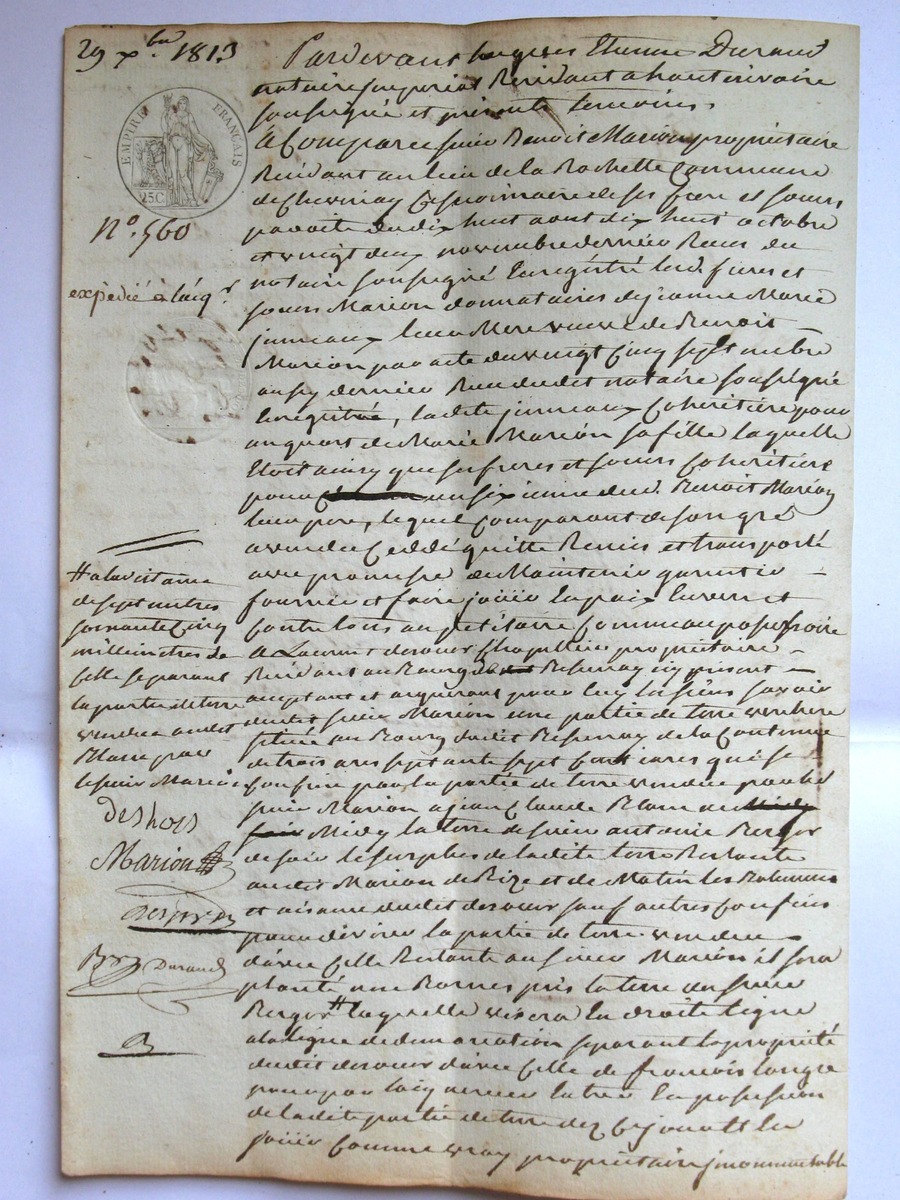 29 xbre 1813
EMPIRE FRANÇAIS
25C
No. 560
expedié à lacqr
Pardevant Jacques Etienne Durand
notaire imperial Residant a hauterivoire
soussigné et presents temoins.
a Comparu sieur Benoit Marion propriétaire
Residant au lieu de la Rochette Commune
de Chevinay Cessionnaire de ses frere et soeurs
par acte du dix huit aout dix huit octobre
et vingt deux novembre dernier Recus du
notaire soussigné Enregistré lesd. freres et
soeurs Marion donnataires de jeanne Marie
junnaux leur Mere veuve de Benoit
Marion par acte du vingt Cinq septembre
aussy dernier Reçu dudit notaire soussigné
Enregistré, ladite junnaux Coheritiere pour
un quart de Marie Marion sa fille laquelle
Etoit ainsy que ses freres et soeurs Coheritiere
pour un sixieme dud. Benoit Marion
leur pere, lequel Comparant de son gré
a vendu Ceddé quitte Remis et transporté
avec promesse de Maintenir garantir
fournir et faire jouir En paix Envers et
Contre tous au petitoire Comme au possessoire
a Laurent desours propriétaire
Residant au Bourg de Bessenay icy present
acceptant et aquerant pour luy les siens savoir
dudit sieur Marion une partie de terre verchere
située au Bourg dudit Bessenay de la Contenue
de trois ares septante sept Centiares qui se
Confine par la partie de terre vendue par led
sieur Marion a jean Claude Blanc au
Midy la terre de sieur antoine Berger
de soir le surplus de ladite terre Restante
audit Marion de Bize et de Matin les Batimens
et aisance dudit desours sauf autres Confins
pour diviser la partie de terre vendue
d'avec Celle Restante au sieur Marion il sera
planté une Bornes près la terre du sieur
Berger # laquelle visera En droite ligne
a la ligne de demarcation separant la propriété
dudit desours d'avec Celle de françois longre
pour par lacquereur Entrer En possession
de ladite partie de terre dez Ce jour et En
jouir Comme vray propriétaire incommutable
# a la distance
de sept metres
soixante Cinq
millimetres de
Celle separant
la partie de terre
vendue audit
Blanc par
le sieur Marion
deshors
Marion
Durand